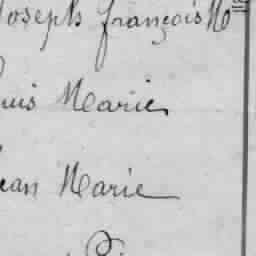 Joseph françois M
uis Marie
ean Marie